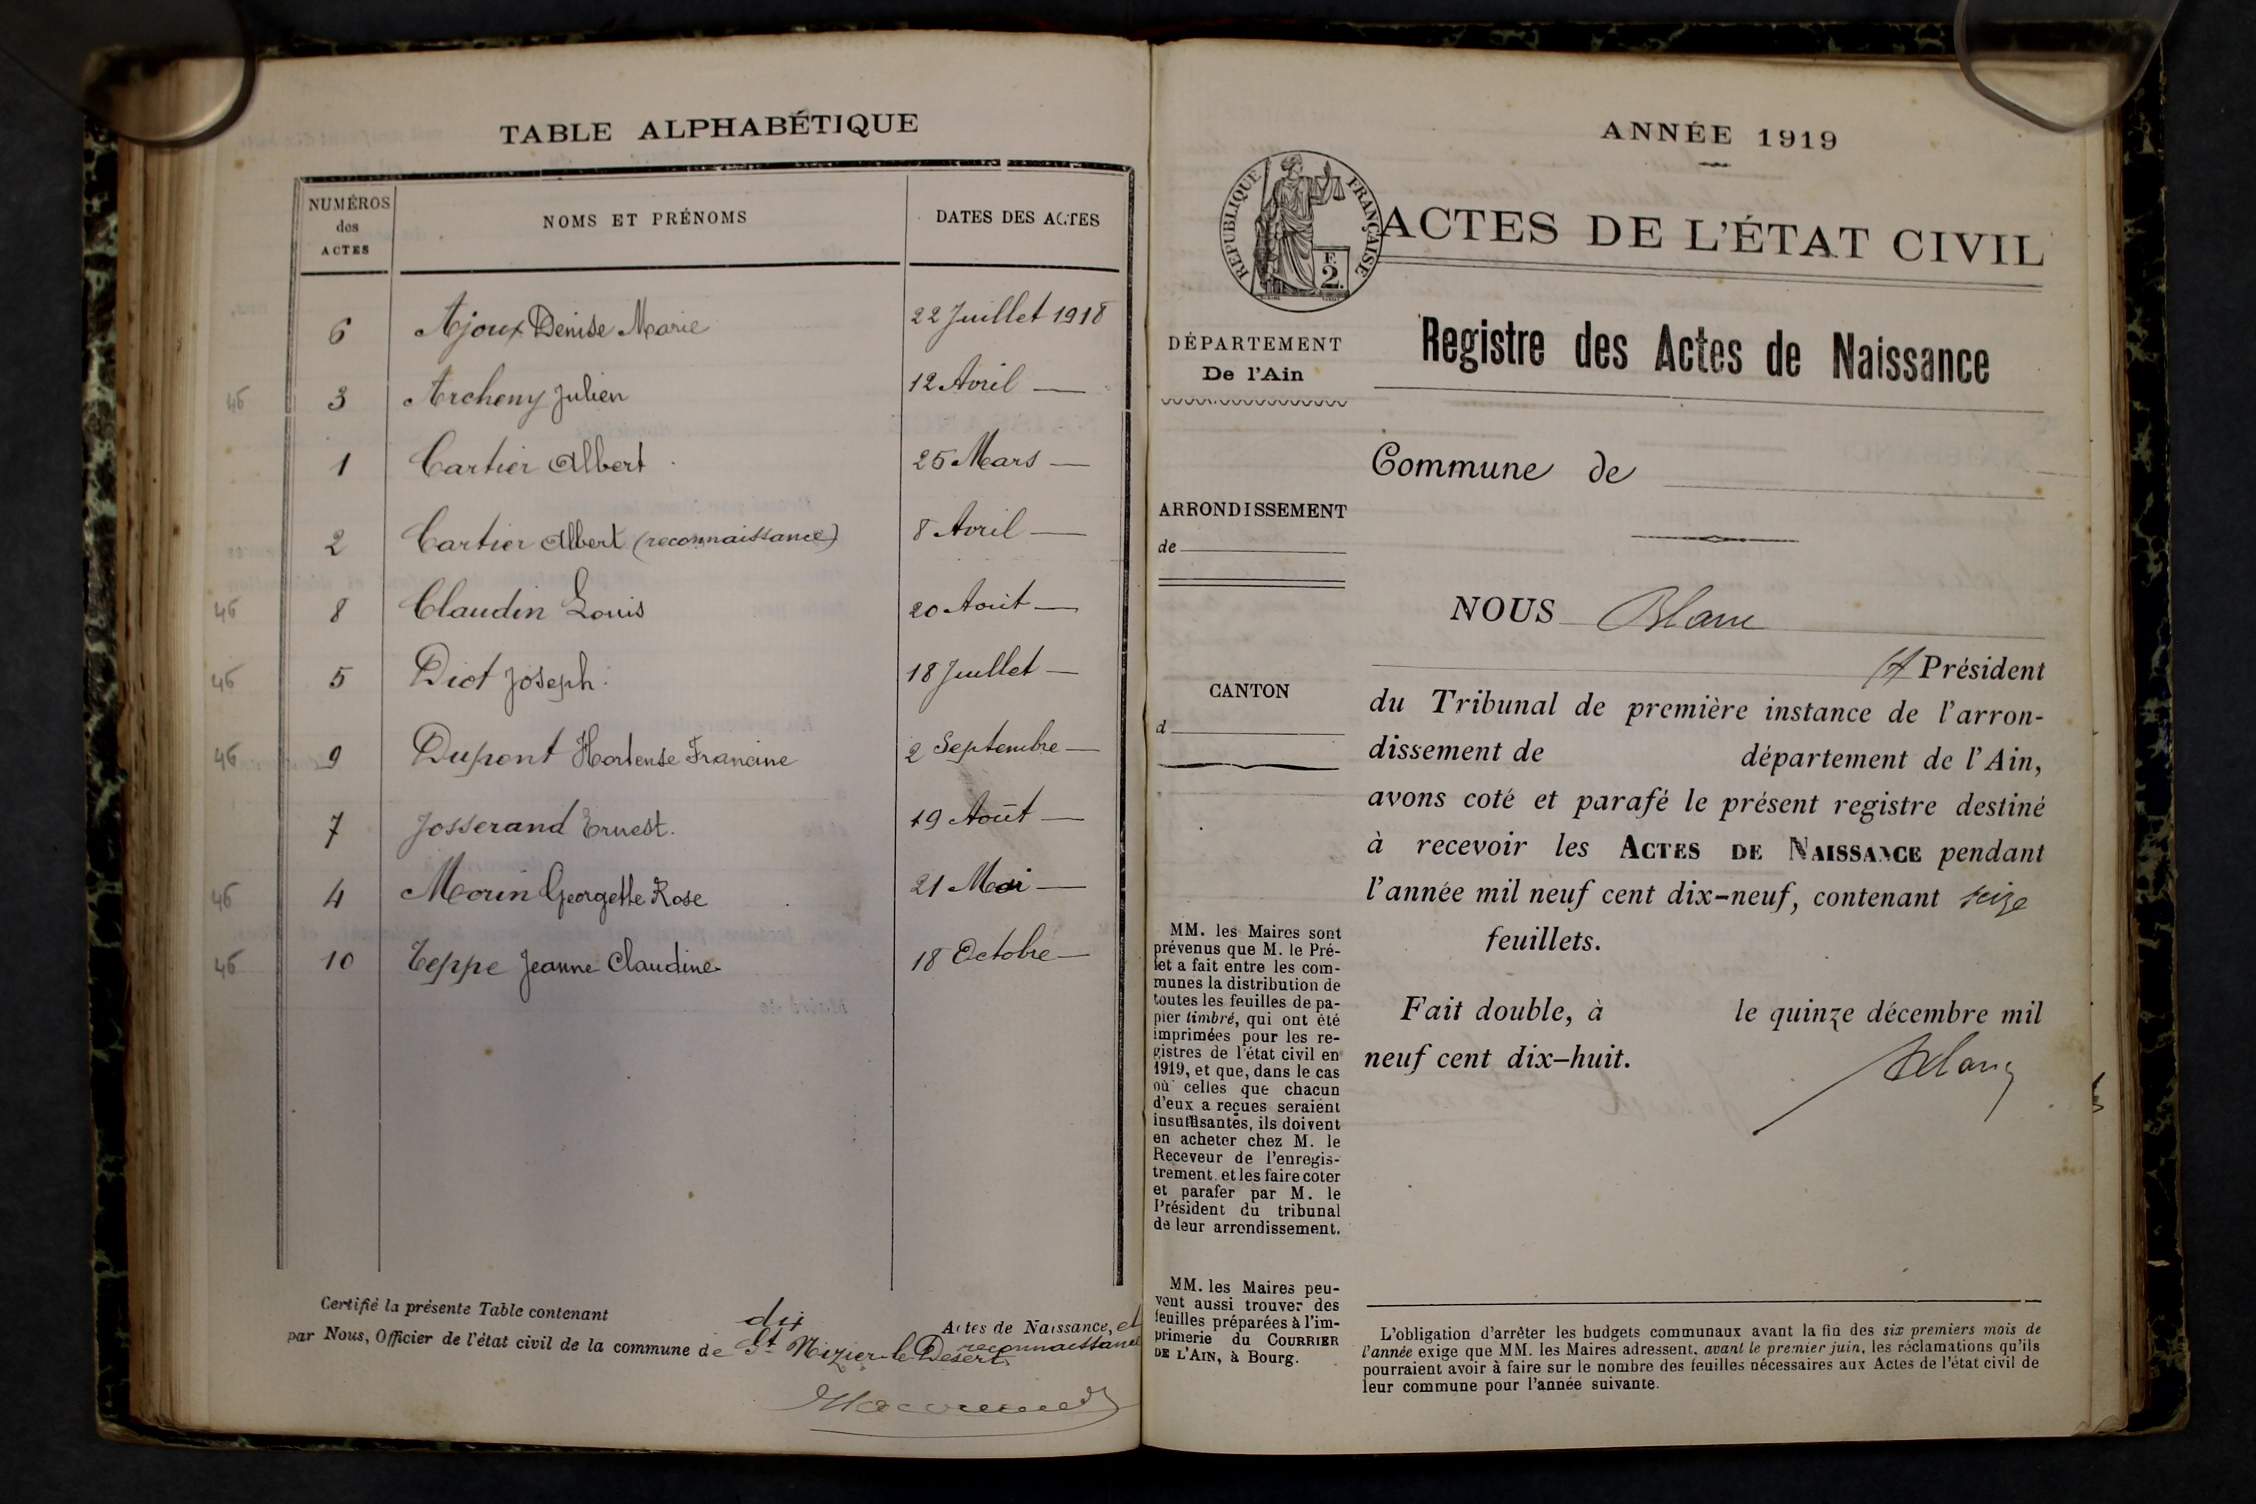 TABLE ALPHABÉTIQUE
NUMÉROS des ACTES NOMS ET PRÉNOMS DATES DES ACTES
6 Ajoux Denise Marie 22 Juillet 1918
46 3 Archeny Julien 12 Avril —
1 Cartier Albert 25 Mars —
2 Cartier Albert (reconnaissance) 8 Avril —
46 8 Claudin Louis 20 Août —
46 5 Diot Joseph 18 Juillet —
46 9 Dupont Hortense Francine 2 Septembre —
7 Josserand Ernest. 19 Août —
46 4 Morin Georgette Rose 21 Mai —
46 10 Teppe Jeanne Claudine 18 Octobre —
Certifié la présente Table contenant dix Actes de Naissance, et reconnaissance
par Nous, Officier de l'état civil de la commune de St Nizier-le-Désert
ANNÉE 1919
RÉPUBLIQUE FRANÇAISE
F. 2.
ACTES DE L'ÉTAT CIVIL
DÉPARTEMENT
De l'Ain
ARRONDISSEMENT
de
CANTON
d
MM. les Maires sont
prévenus que M. le Pré-
fet a fait entre les com-
munes la distribution de
toutes les feuilles de pa-
pier timbré, qui ont été
imprimées pour les re-
gistres de l'état civil en
1919, et que, dans le cas
où celles que chacun
d'eux a reçues seraient
insuffisantes, ils doivent
en acheter chez M. le
Receveur de l'enregis-
trement, et les faire coter
et parafer par M. le
Président du tribunal
de leur arrondissement.
MM. les Maires peu-
vent aussi trouver des
feuilles préparées à l'im-
primerie du COURRIER
DE L'AIN, à Bourg.
Registre des Actes de Naissance
Commune de
NOUS Blanc
Président
du Tribunal de première instance de l'arron-
dissement de département de l'Ain,
avons coté et parafé le présent registre destiné
à recevoir les ACTES DE NAISSANCE pendant
l'année mil neuf cent dix-neuf, contenant seize
feuillets.
Fait double, à le quinze décembre mil
neuf cent dix-huit.
Blanc
L'obligation d'arrêter les budgets communaux avant la fin des six premiers mois de
l'année exige que MM. les Maires adressent, avant le premier juin, les réclamations qu'ils
pourraient avoir à faire sur le nombre des feuilles nécessaires aux Actes de l'état civil de
leur commune pour l'année suivante.